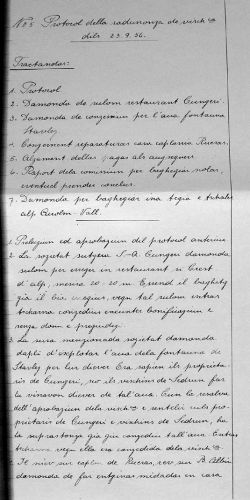 No 5 Protocol della radunonza de visch.
dils 23.9.56.
Tractandas:
1. Protocol
2. Damonda de sulom restaurant Cungieri.
3. Damonda de concessiun per l'aua fontauna
Stavley.
4. Concziment reparaturas casa caplania Rueras.
5. Alzament dellas pagas als
6. Raport dela comissiun per baghegiar
eventuel prender conclus.
7. Damonda per baghegiar ina tegia e
alp Cuolm-Vall.
1. Prelegiu ed aprobaziun del protocol anteriur
2. La sozietat S-A. Cungieri damonda
sulom per eriger in restaurant si Crest
d'alp, mesira 20.20 m. Essend il baghetg
gia il vegn tal sulom entras
concedius encunter bonificaziun e
senza donn e pregiudezi.
3. La sura menzionada sozietat damonda
d'explotar l'aua dela fontauna de
Stavley per lur diever. Era sapien ils proprieta-
ris de Cungieri, sco ils vischins de Sedrun far
la diever de tal aua. Cun la resalva
dell'aprobaziun dela visch. e culs pro-
prietaris de Cungieri e vischins de Sedrun, ha
la suprastonza gia concediu tall'aua. Entras
vegn ella era concedida dela visch.
2. Il mir sur caplon de Rueras, rev. sur B.
damonda de far entginas midadas en casa